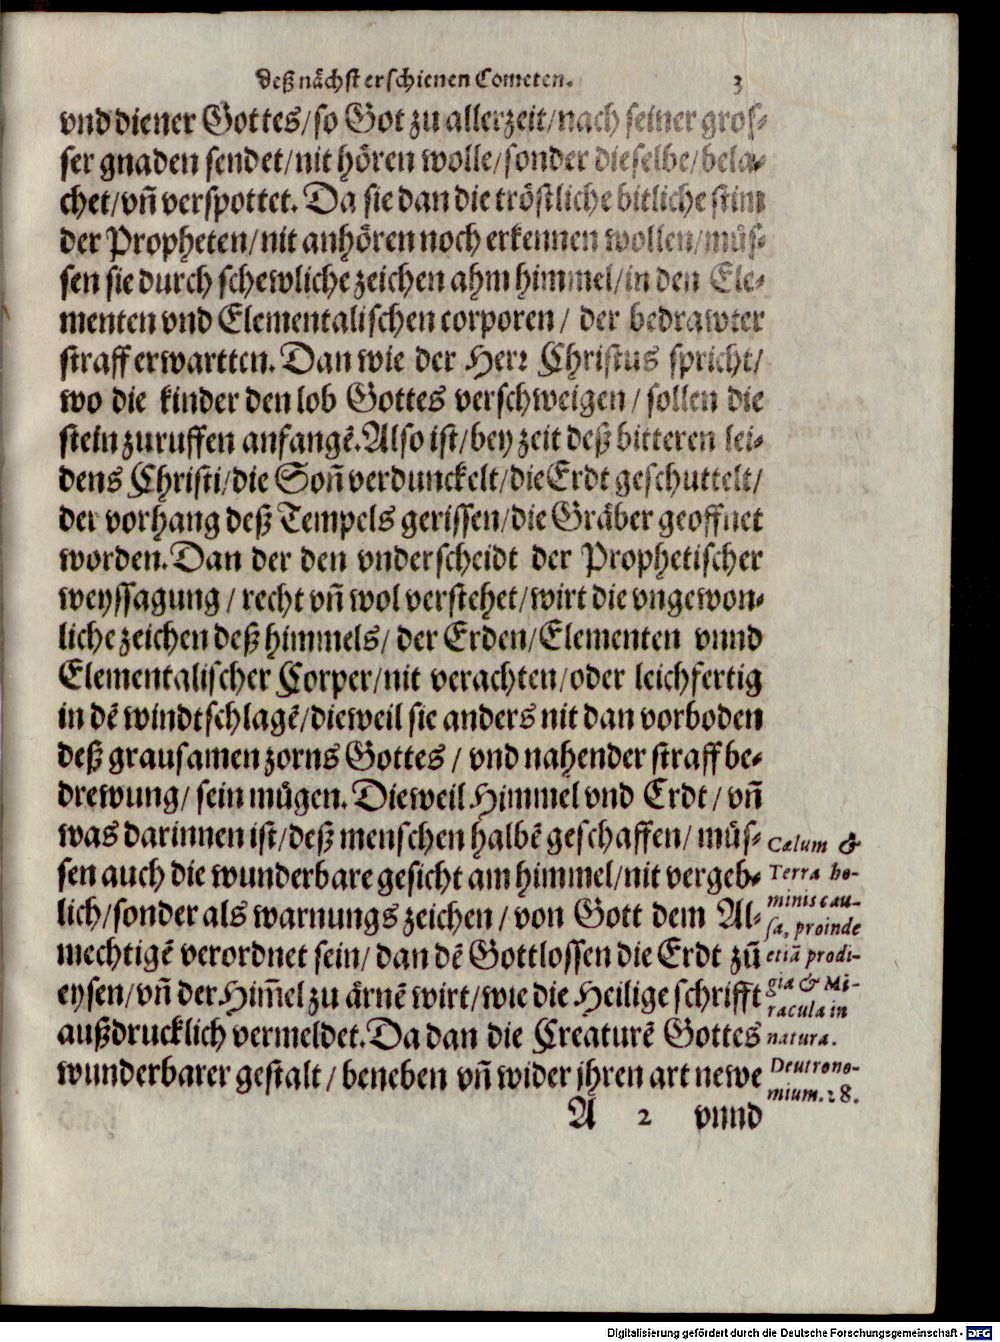 deß nächst erschienen Cometen. 3
vnd diener Gottes/so Got zu allerzeit/nach seiner gros-
ser gnaden sendet/nit hören wolle/sonder dieselbe/bela-
chet/vñ verspottet. Da sie dan die tröstliche bitliche stim
der Propheten/nit anhören noch erkennen wollen/müs-
sen sie durch schewliche zeichen ahm himmel/in den Ele-
menten vnd Elementalischen corporen/ der bedrawter
straff erwartten. Dan wie der Herr Christus spricht/
wo die kinder den lob Gottes verschweigen/sollen die
stein zuruffen anfangẽ. Also ist/bey zeit deß bitteren lei-
dens Christi/die Soñ verdunckelt/die Erdt geschuttelt/
der vorhang deß Tempels gerissen/die Gräber geoffnet
worden. Dan der den vnderscheidt der Prophetischer
weyssagung/recht vñ wol verstehet/wirt die vngewon-
liche zeichen deß himmels/ der Erden/Elementen vnnd
Elementalischer Corper/nit verachten/oder leichfertig
in dẽ windt schlagẽ/dieweil sie anders nit dan vorboden
deß grausamen zorns Gottes/ vnd nahender straff be-
drewung/ sein mügen. Dieweil Himmel vnd Erdt/ vñ
was darinnen ist/deß menschen halbẽ geschaffen/ müs-
sen auch die wunderbare gesicht am himmel/nit vergeb-
lich/sonder als warnungs zeichen/ von Gott dem Al-
mechtigẽ verordnet sein/dan dẽ Gottlossen die Erdt zũ
eysen/vñ der Him̃el zu ärnẽ wirt/wie die Heilige schrifft
außdrucklich vermeldet. Da dan die Creaturẽ Gottes
wunderbarer gestalt/ beneben vñ wider jhren art newe
A 2 vnnd
Cælum &
Terra ho-
minis cau-
sa, proinde
etiã prodi-
gia & Mi-
racula in
natura.
Deutrono-
mium. 28.
Digitalisierung gefördert durch die Deutsche Forschungsgemeinschaft - DFG